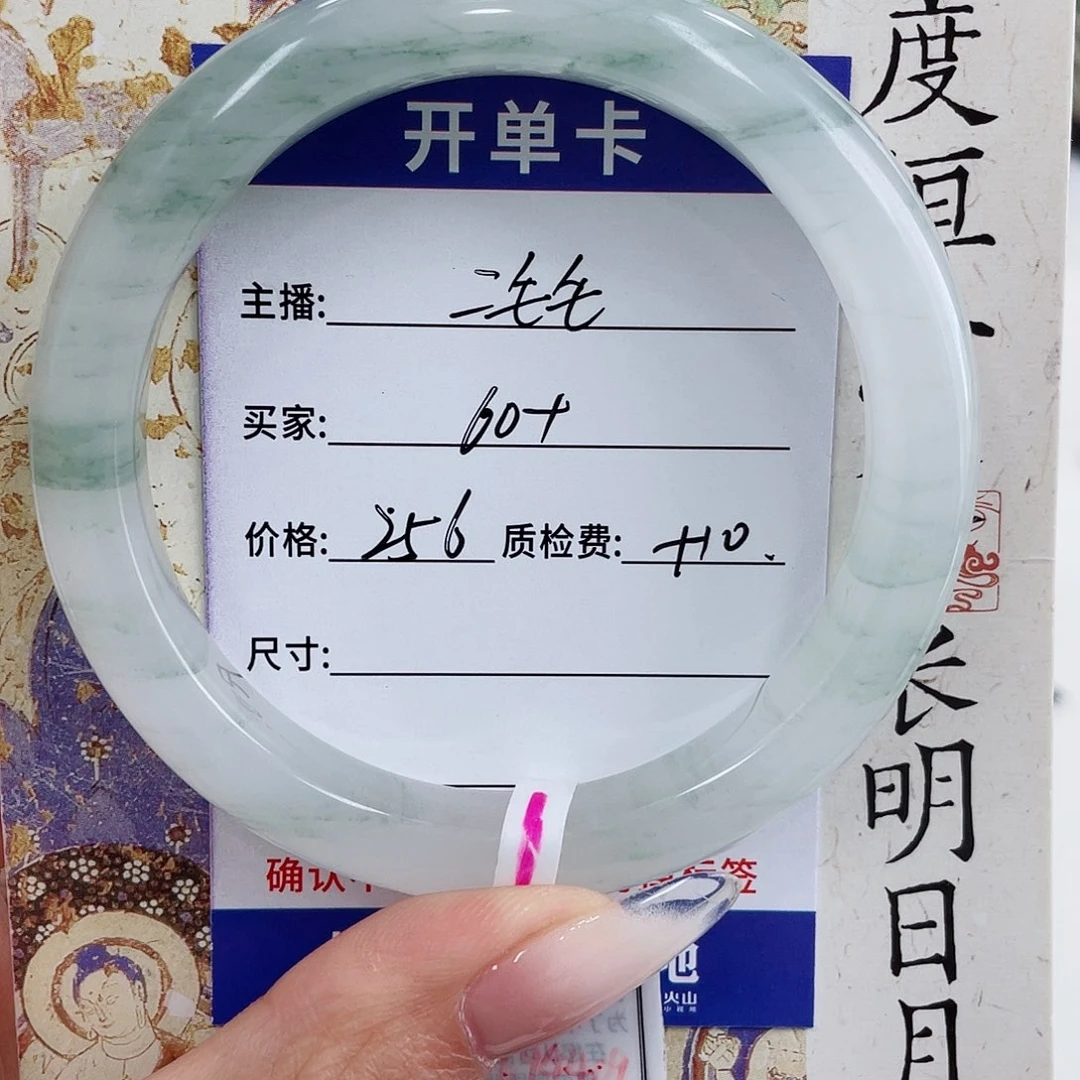 开单卡
主播: 二毛毛
买家: 60+
价格: 256 质检费: +10.
尺寸:
确认
签
火山
度
恒
长明日月